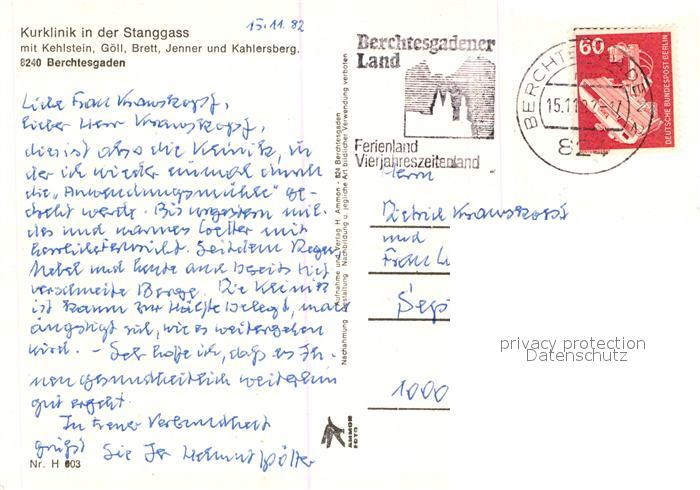 15.11.82
Kurklinik in der Stanggass
mit Kehlstein, Göll, Brett, Jenner und Kahlersberg.
8240 Berchtesgaden
Liebe Frau Krauskopf,
lieber Herr Krauskopf,
dies ist also die Klinik, in
der ich wieder einmal durch
die „Anwendungsmühle" ge-
dreht werde. Bis vorgestern mil-
des und warmes Wetter mit
herrlicher Seitdem Regen,
Nebel und heute auch bereits tief
verschneite Berge. Die Klinik
ist kaum zur Hälfte belegt, man
ängstigt sich, wie es weitergehen
wird. – Sehr hoffe ich, daß es Ih-
nen gesundheitlich weiterhin
gut ergeht.
In treuer Verbundenheit
grüßt Sie Ihr Helmut
Nr. H 603
Nachahmung Gestaltung, Aufnahme und Verlag H. Ammon · 824 Berchtesgaden
Nachbildung u. jegliche Art bildlicher Verwendung verboten
AMMON
FOTO
Berchtesgadener
Land
Ferienland
Vierjahreszeitenland
BERCHTESGADEN
15.11.82
824
60
DEUTSCHE BUNDESPOST BERLIN
Herrn
Dietrich Krauskopf
und
Frau
1000
privacy protection
Datenschutz